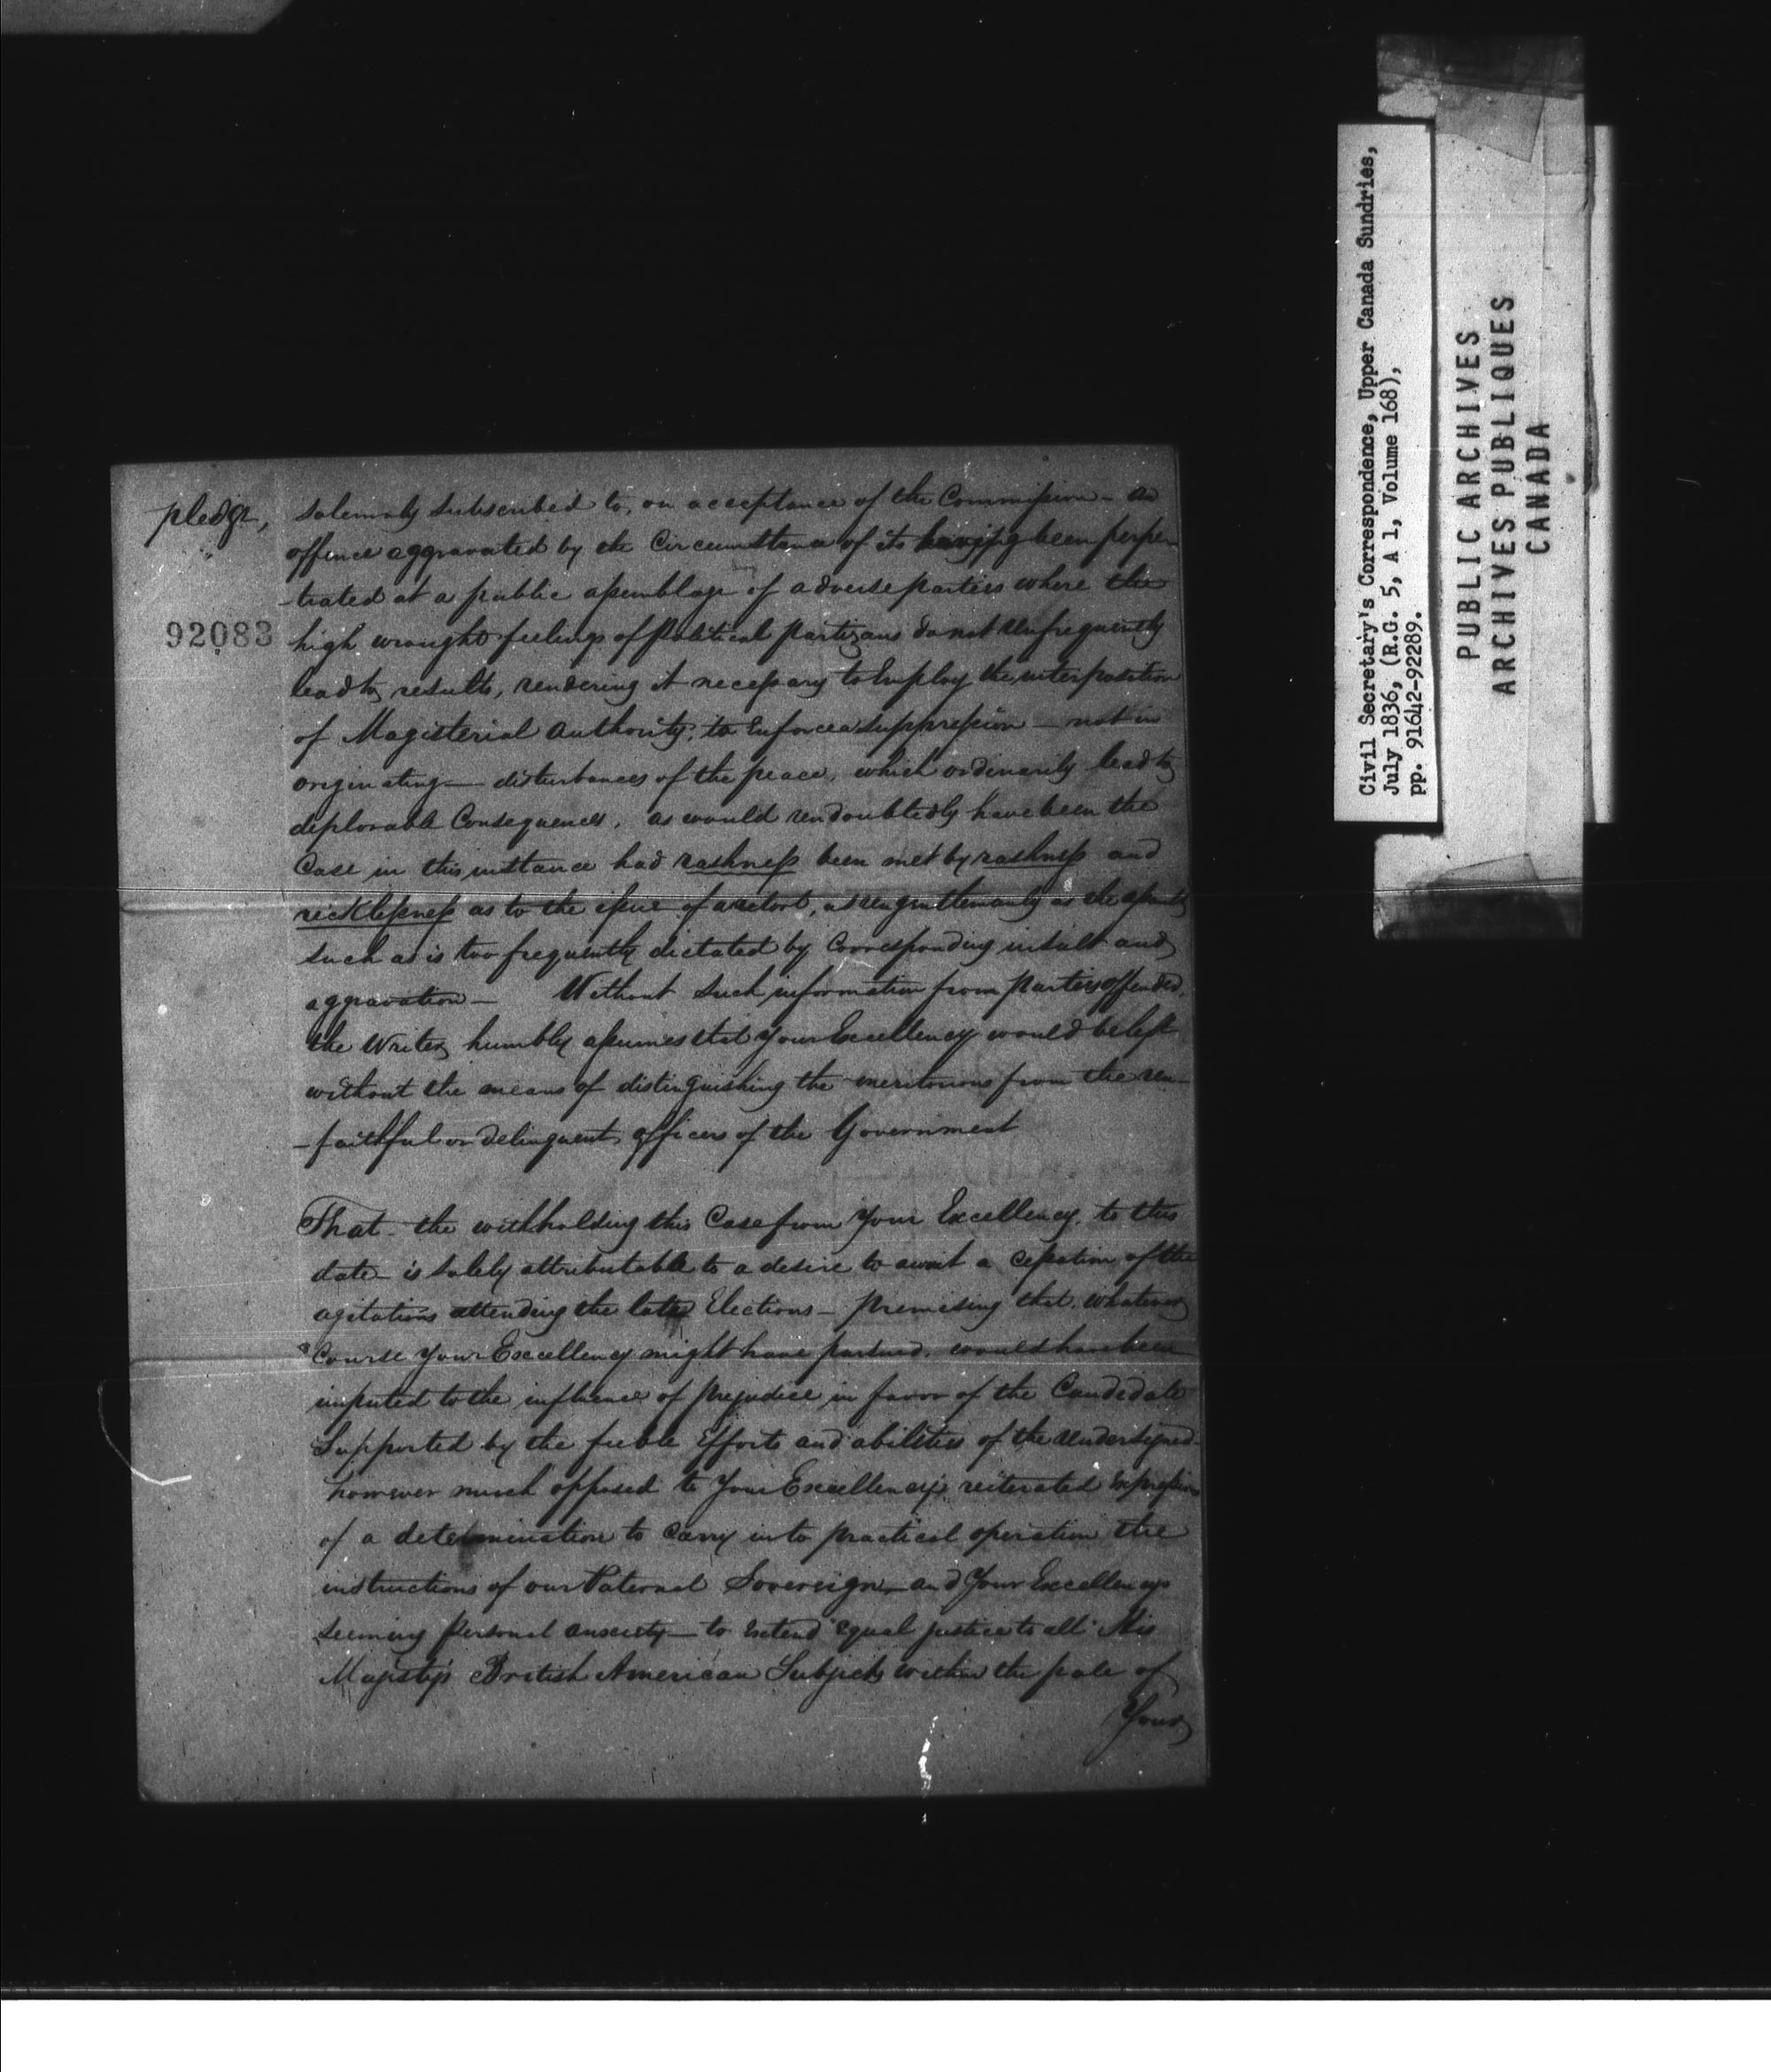 pledge, solemnly subscribed to, on acceptance of the Commission – an
offence aggravated by the Circumstance of its having been perpe-
92083
-trated at a public assemblage of adverse parties where the
high wrought feelings of Political partizans do not unfrequently
lead to results, rendering it necessary to Employ the interposition
of Magisterial Authority; to Enforce a suppression – not in
originating – disturbances of the peace, which ordinarily lead to
deplorable Consequences, as would undoubtedly have been the
Case in this instance had rashness been met by rashness and
recklessness as to the issue of a retort, as ungentlemanly as the
such as is too frequently dictated by Corresponding insult and
aggravation – Without such information from parties offended,
the Writer humbly assumes that Your Excellency would be left
without the means of distinguishing the meritorious from the un-
-faithful or delinquent officers of the Government
That the withholding this Case from Your Excellency, to this
date – is solely attributable to a desire to await a cessation of the
agitations attending the late Elections – premising that, whatever
Course Your Excellency might have pursued, would have been
imputed to the influence of prejudice in favor of the Candidate
Supported by the feeble Efforts and abilities of the undersigned –
however much opposed to Your Excellency's reiterated Expressions
of a determination to Carry into practical operation the
instructions of our Paternal Sovereign – and Your Excellencys
seeming personal anxiety – to Extend equal justice to all His
Majesty's British American Subjects within the pale of
Your
Civil Secretary's Correspondence, Upper Canada Sundries,
July 1836, (R.G. 5, A 1, Volume 168),
pp. 91642-92289.
PUBLIC ARCHIVES
ARCHIVES PUBLIQUES
CANADA